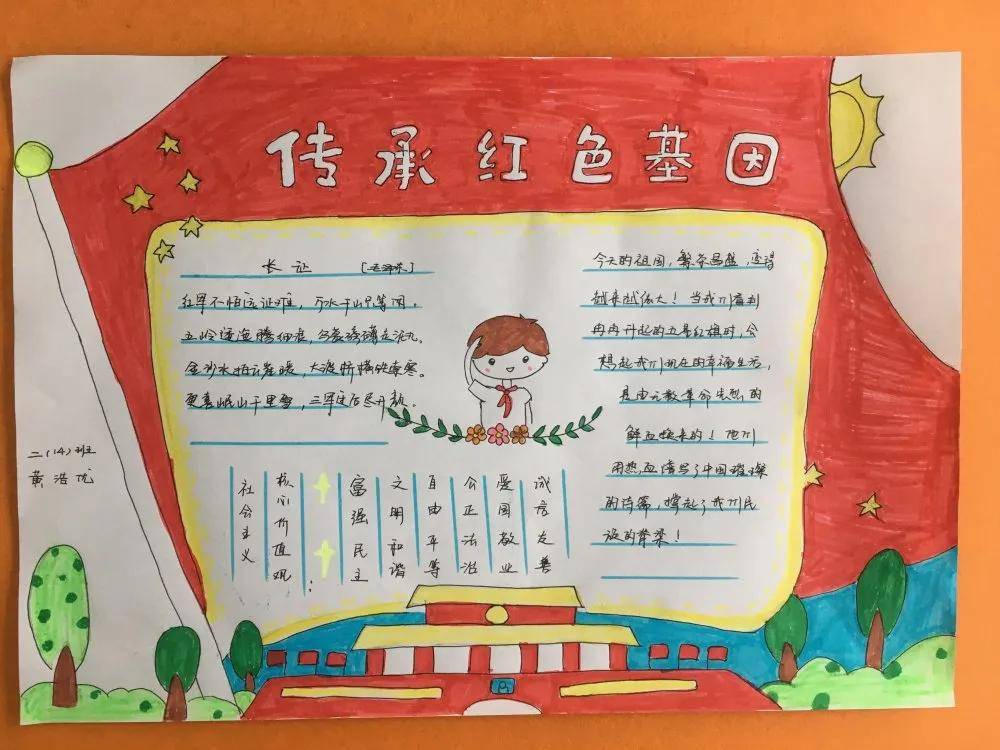 传承红色基因
长征 [毛泽东]
红军不怕远征难，万水千山只等闲。
五岭逶迤腾细浪，乌蒙磅礴走泥丸。
金沙水拍云崖暖，大渡桥横铁索寒。
更喜岷山千里雪，三军过后尽开颜。
今天的祖国，繁荣昌盛，变得
越来越伟大！当我们看到
冉冉升起的五星红旗时，会
想起我们现在的幸福生活，
是由无数革命先烈的
鲜血换来的！他们
用热血谱写了中国璀璨
的诗篇，撑起了我们民
族的脊梁！
社会主义
核心价值观
：
富强民主
文明和谐
自由平等
公正法治
爱国敬业
诚信友善
二(14)班
黄浩优